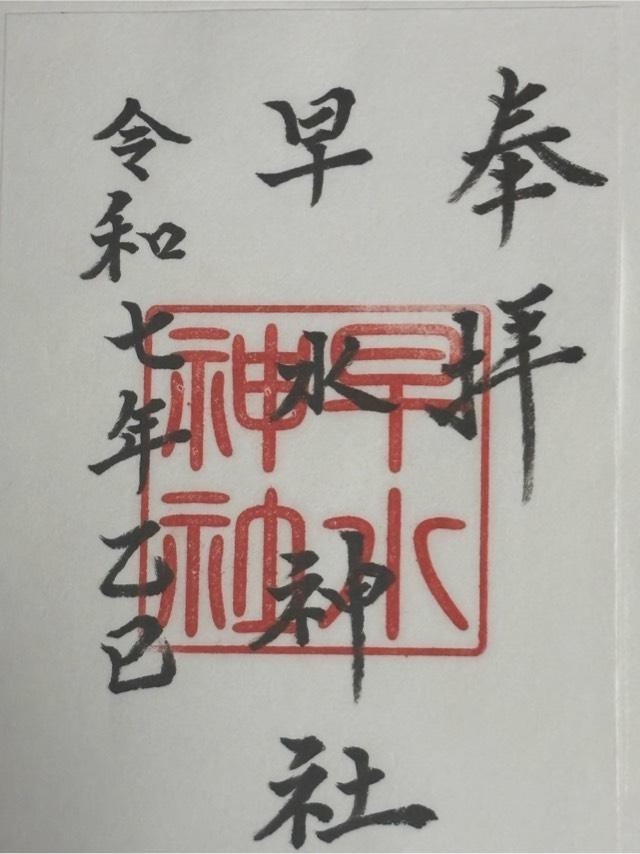 奉拝
早水神社
令和七年乙巳
早水
神社